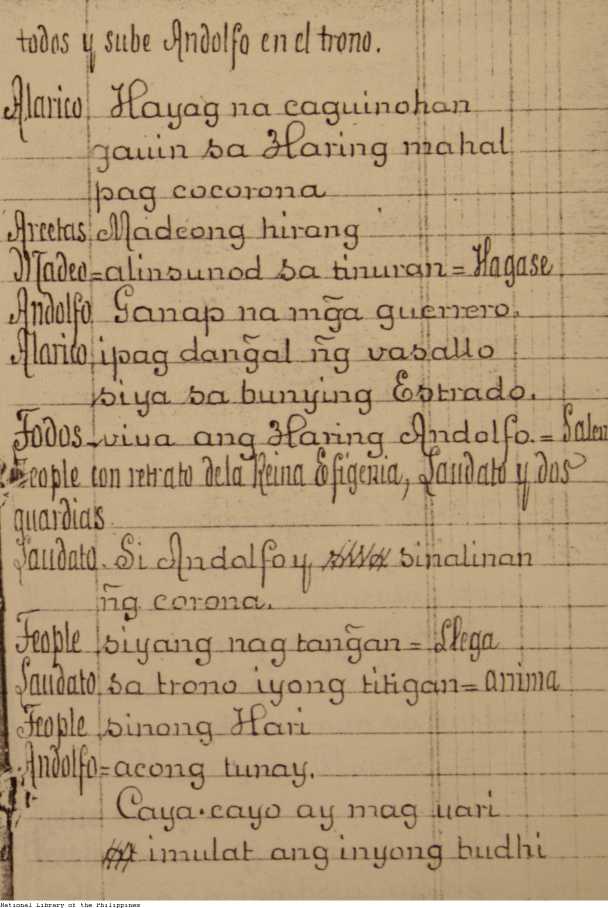 todos y sube Andolfo en el trono.
Alarico Hayag na caguinohan
gauin sa Haring mahal
pag cocorona
Arcetas Madeong hirang
Madeo=alinsunod sa tinuran=Hagase
Andolfo Ganap na mg̃a guerrero.
Alarico ipag dang̃al ñg vasallo
siya sa bunying Estrado.
Todos-viva ang Haring Andolfo.=Salen
Feople con retrato dela Reina Efigenia, Laudato y dos
guardias
Laudato. Si Andolfo y sinalinan
ñg corona.
Feople siyang nag tang̃an=Llega
Laudato sa trono iyong titigan=anima
Feople sinong Hari
Andolfo=acong tunay.
Caya.cayo ay mag uari
imulat ang inyong budhi
National Library of the Philippines